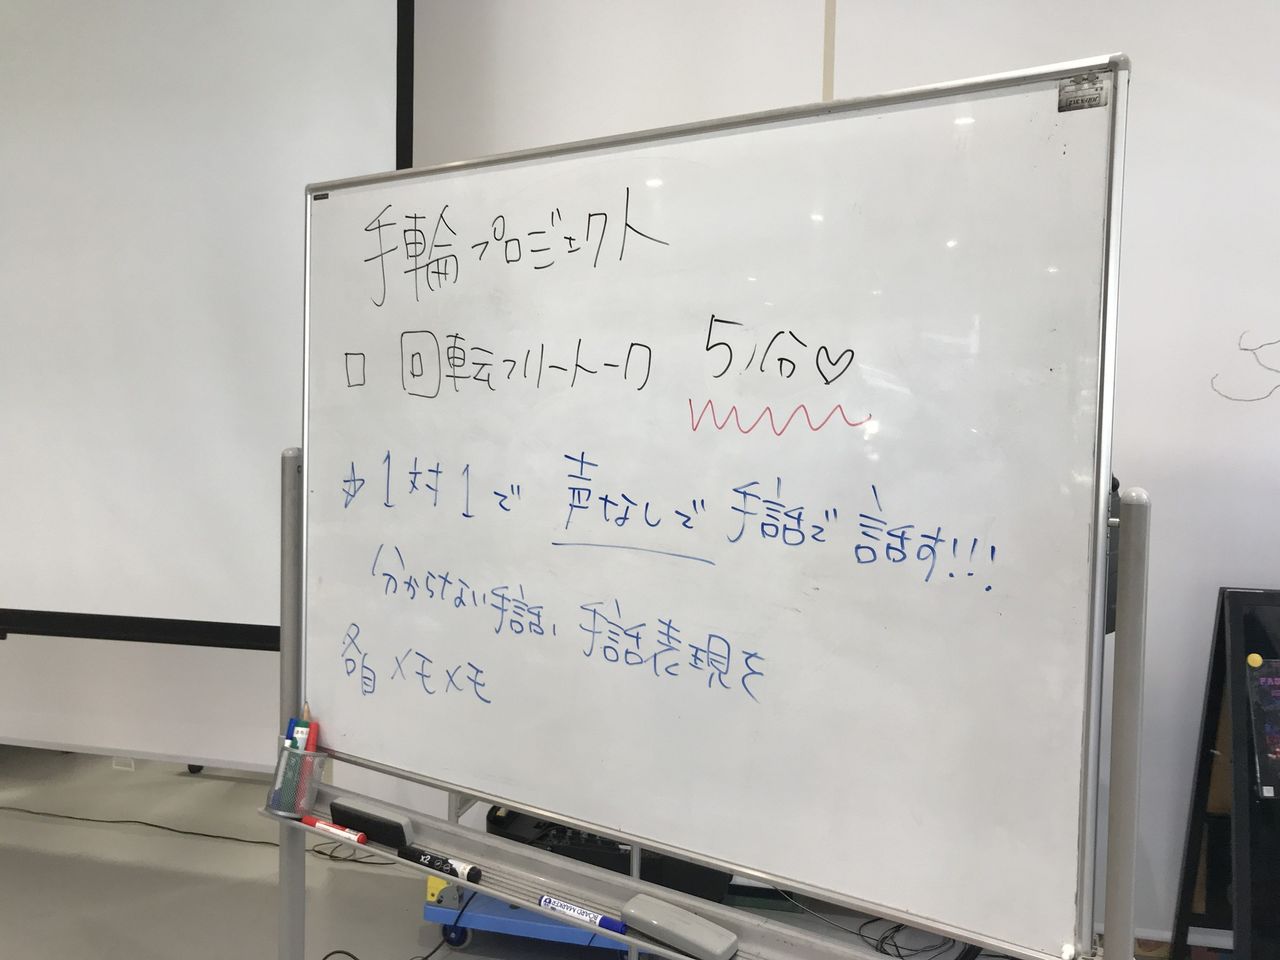 手輪プロジェクト
□ 回転フリートーク 5分♡
→1対1で 声なしで 手話で 話す!!!
分からない手話、手話表現を
各自メモメモ
BOARD MARKER
x2